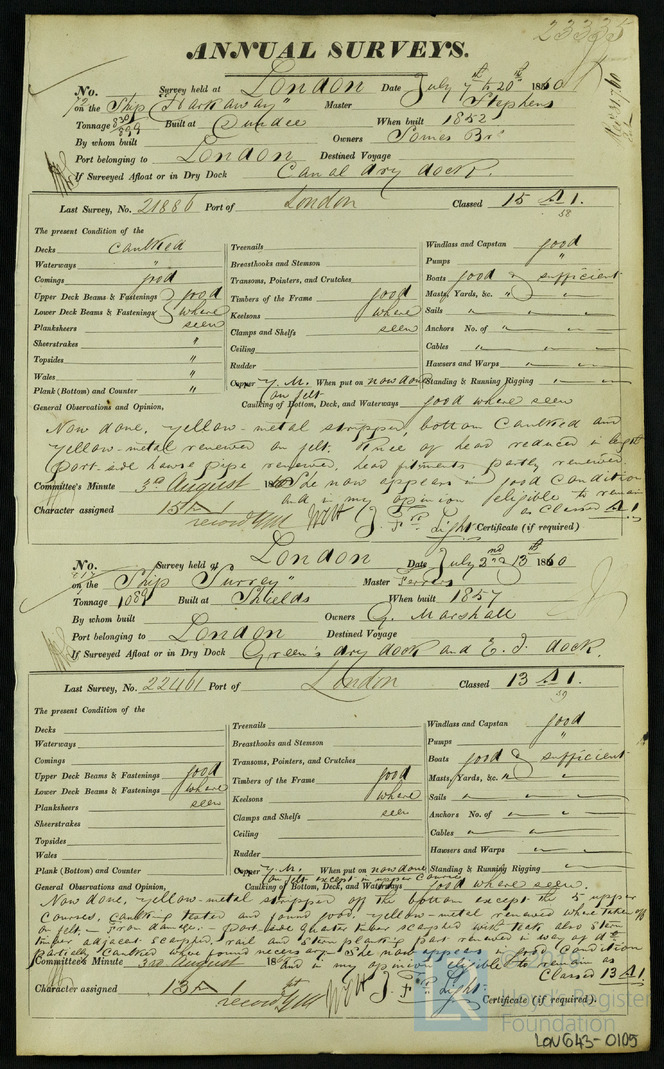 23335
ANNUAL SURVEYS.
No. Survey held at London Date July 7th to 20th 1860
on the Ship "Harkaway" Master Stephens
Tonnage 830/899 Built at Dundee When built 1852
By whom built Owners Somes Brs
Port belonging to London Destined Voyage
If Surveyed Afloat or in Dry Dock Canal dry dock.
Last Survey, No. 21886 Port of London Classed 15 A 1.
58
The present Condition of the
Decks caulked
Waterways "
Comings good
Upper Deck Beams & Fastenings good
Lower Deck Beams & Fastenings where
Planksheers seen
Sheerstrakes "
Topsides "
Wales "
Plank (Bottom) and Counter "
Treenails
Breasthooks and Stemson
Transoms, Pointers, and Crutches
Timbers of the Frame good
Keelsons where
Clamps and Shelfs seen
Ceiling
Rudder
Copper y. M. When put on now done
on felt
Windlass and Capstan good
Pumps "
Boats good & sufficient
Masts, Yards, &c. "
Sails "
Anchors No. of "
Cables "
Hawsers and Warps "
Standing & Running Rigging "
General Observations and Opinion, Caulking of Bottom, Deck, and Waterways good where seen
Now done, yellow-metal stripped, bottom caulked and
yellow-metal renewed on felt. Knee of head reduced in length
Port side hawse pipe renewed, head fitments partly renewed
She now appears in good condition
Committee's Minute 3rd August 186
and in my opinion eligible to remain
as Classed A 1
Character assigned 15 A 1
record YM J. F. Light Certificate (if required)
No. Survey held at London Date July 2nd 13th 1860
on the Ship "Surrey" Master Ferrers
Tonnage 1089 Built at Shields When built 1857
By whom built Owners G. Marshall
Port belonging to London Destined Voyage
If Surveyed Afloat or in Dry Dock Green's dry dock and E. I. dock.
Last Survey, No. 22461 Port of London Classed 13 A 1.
59
The present Condition of the
Decks
Waterways
Comings
Upper Deck Beams & Fastenings good
Lower Deck Beams & Fastenings where
Planksheers seen
Sheerstrakes
Topsides
Wales
Plank (Bottom) and Counter
Treenails
Breasthooks and Stemson
Transoms, Pointers, and Crutches
Timbers of the Frame good
Keelsons where
Clamps and Shelfs seen
Ceiling
Rudder
Copper y. M. When put on now done
on felt except in upper Courses
Windlass and Capstan good
Pumps "
Boats good & sufficient
Masts, Yards, &c. "
Sails "
Anchors No. of "
Cables "
Hawsers and Warps "
Standing & Running Rigging "
General Observations and Opinion, Caulking of Bottom, Deck, and Waterways good where seen.
Now done, yellow-metal stripped off the bottom except the 5 upper
Courses, Caulking tested and found good. yellow-metal renewed where taken off
on felt, — Iron damage: — port side quarter timber scarphed with teak, also stern
timber adjacent scarphed, rail and stern planking part renewed in way of it
partially Caulked where found necessary. She now appears in good Condition
Committee's Minute 3rd August 18
and in my opinion eligible to remain as
Classed 13 A 1
Character assigned 13 A 1
record YM J. F. Light. Certificate (if required).
Lloyd's Register
Foundation
LON643-0105